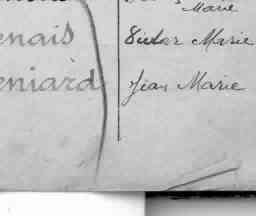 Marie
enais Victor Marie
eniard Jean Marie